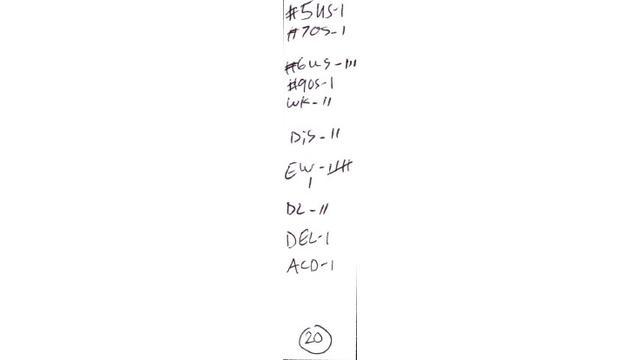 #5US-I
#7OS-I
#6US-III
#9OS-I
WK-II
DiS-II
EW-IIII
I
DL-II
DEL-I
ACD-I
20